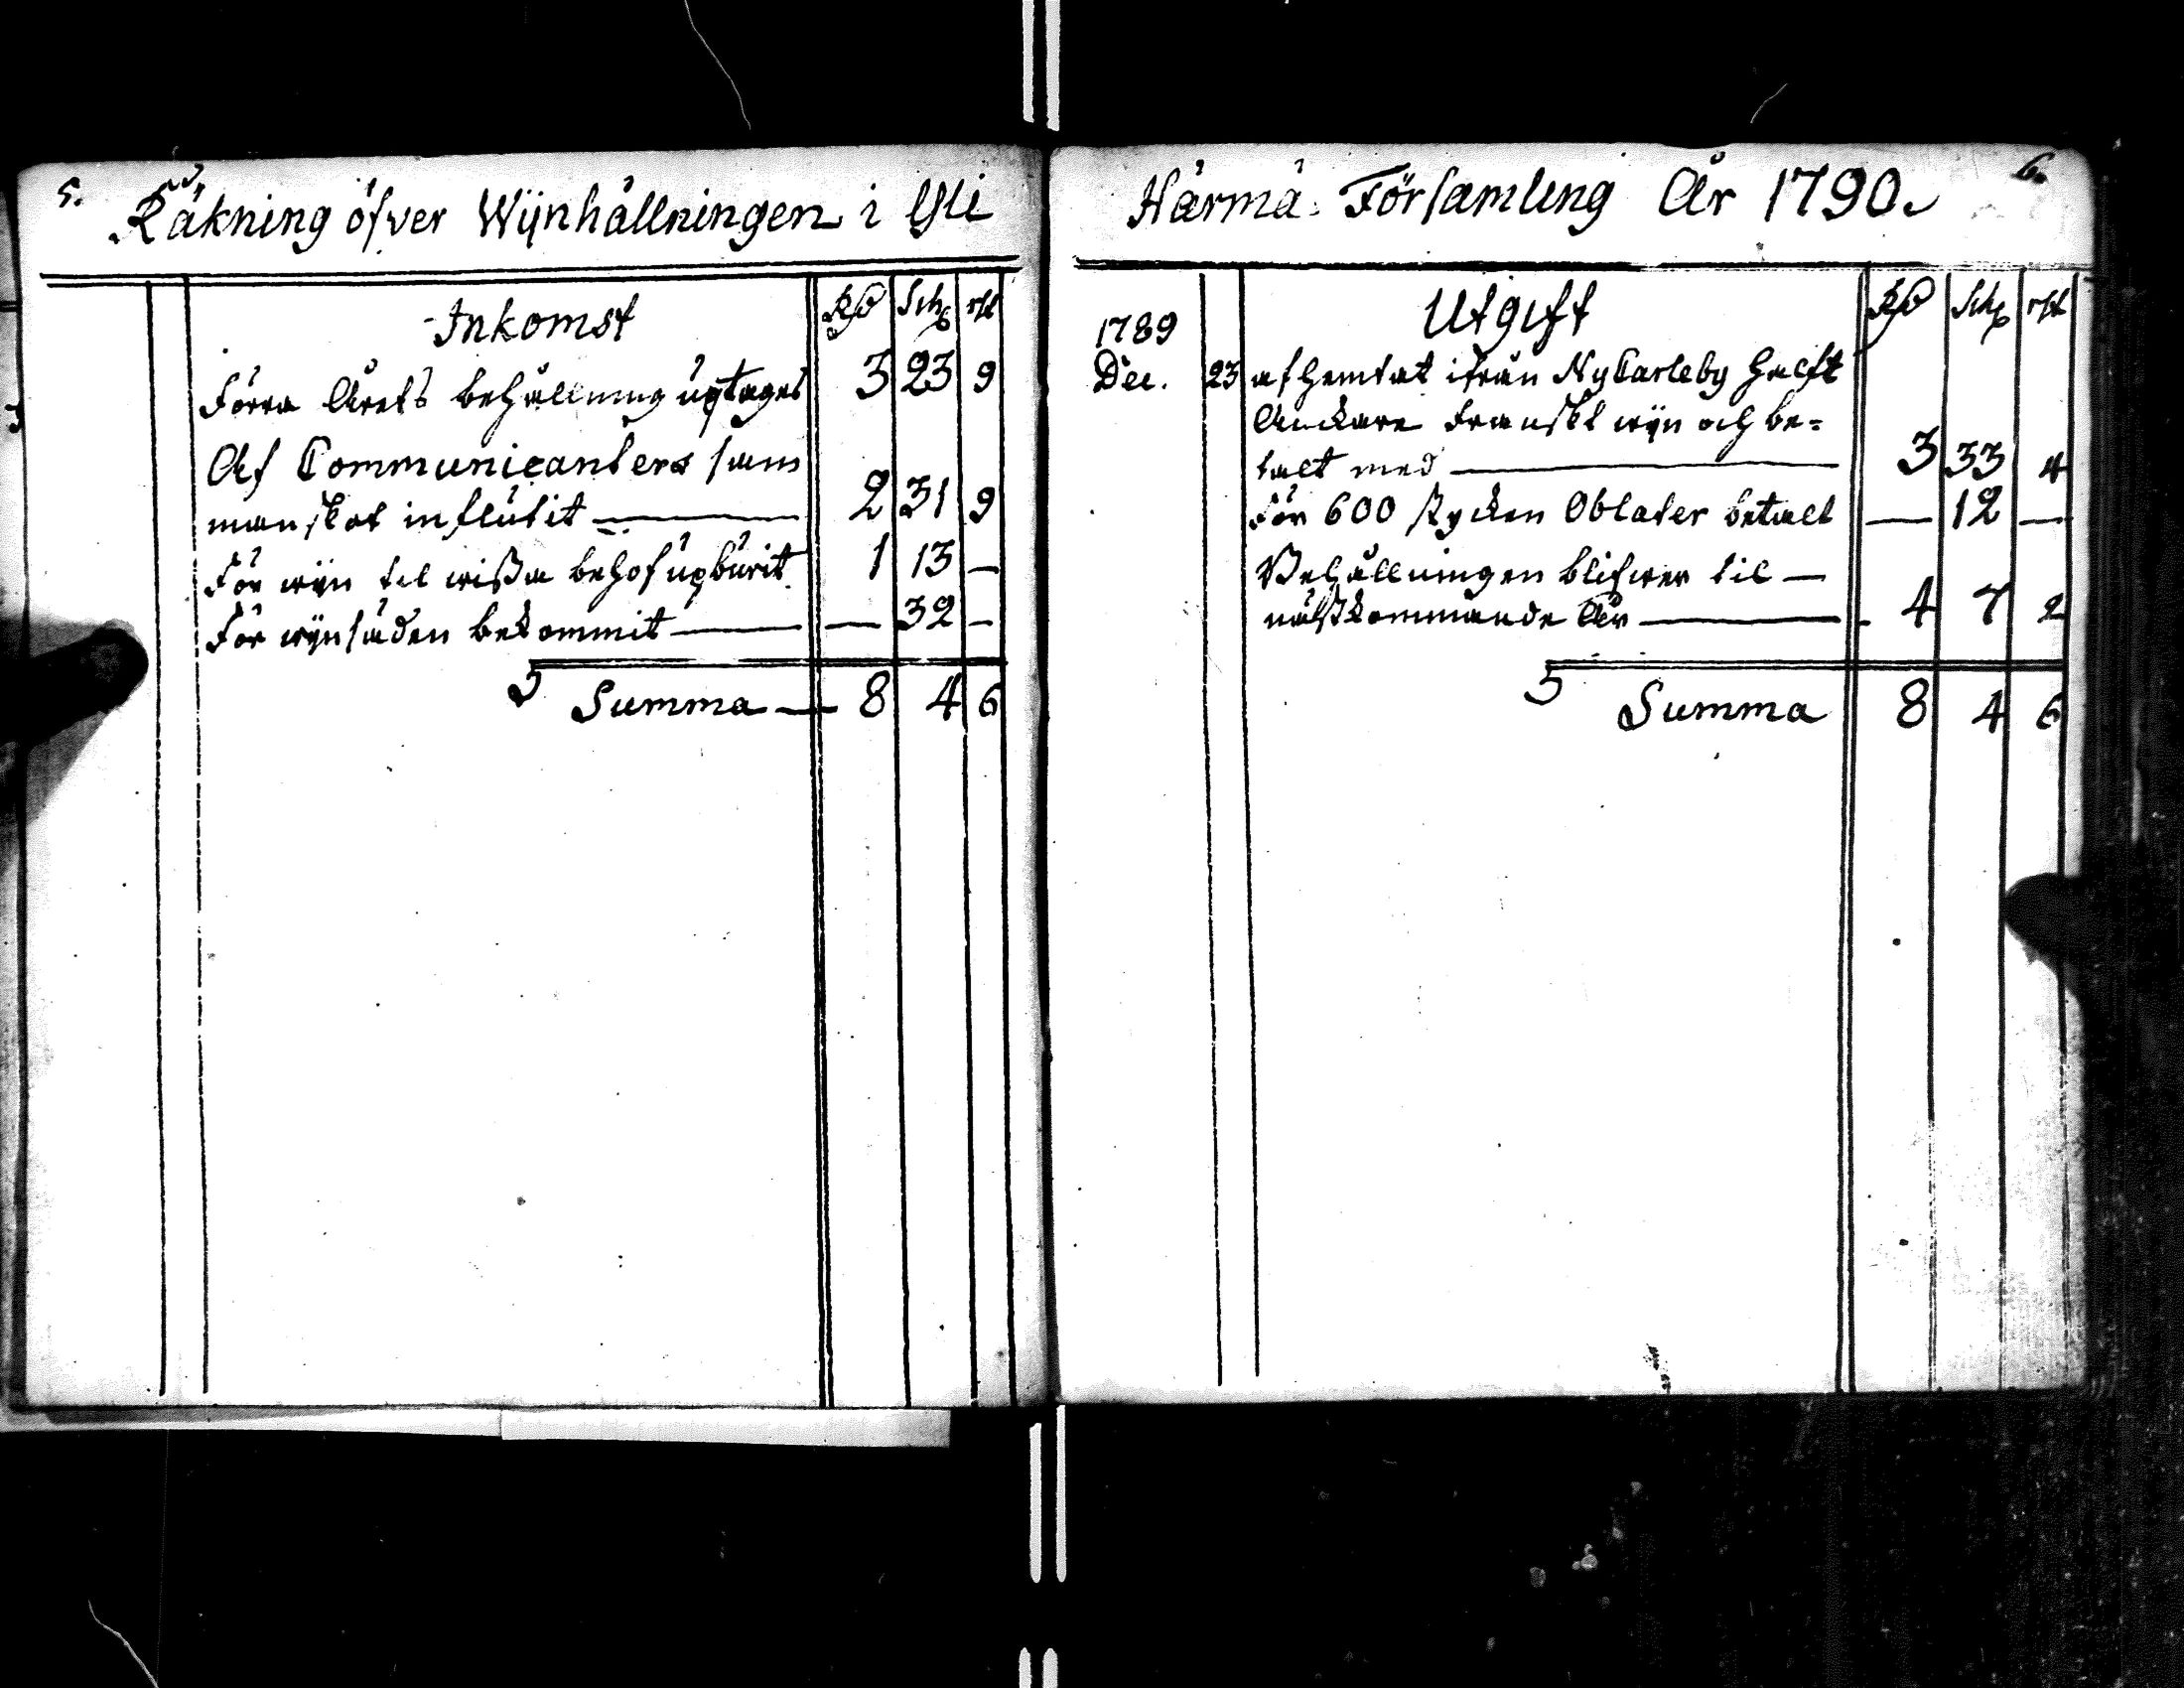 5.
Räkning öfver Wijnhållningen i Yli
Inkomst Rd Sch rst
Förra Årets behållning uptages 3 23 9
Af Communicanters sam
manskot influtit — 2 31 9
För wijn til wissa behof upburit 1 13 —
För wijnsåden bekommit — — 32 —
Summa — 8 4 6
6.
Härmä Församling År 1790.
Utgift Rd Sch rst
1789
Dec. 23 afhemtat ifrån NyCarleby halft
Anckare Franskt wijn och be=
talt med — 3 33 4
För 600 stycken Oblater betalt — 12 —
Behållningen blifwer til —
nästkommande År — 4 7 2
Summa 8 4 6